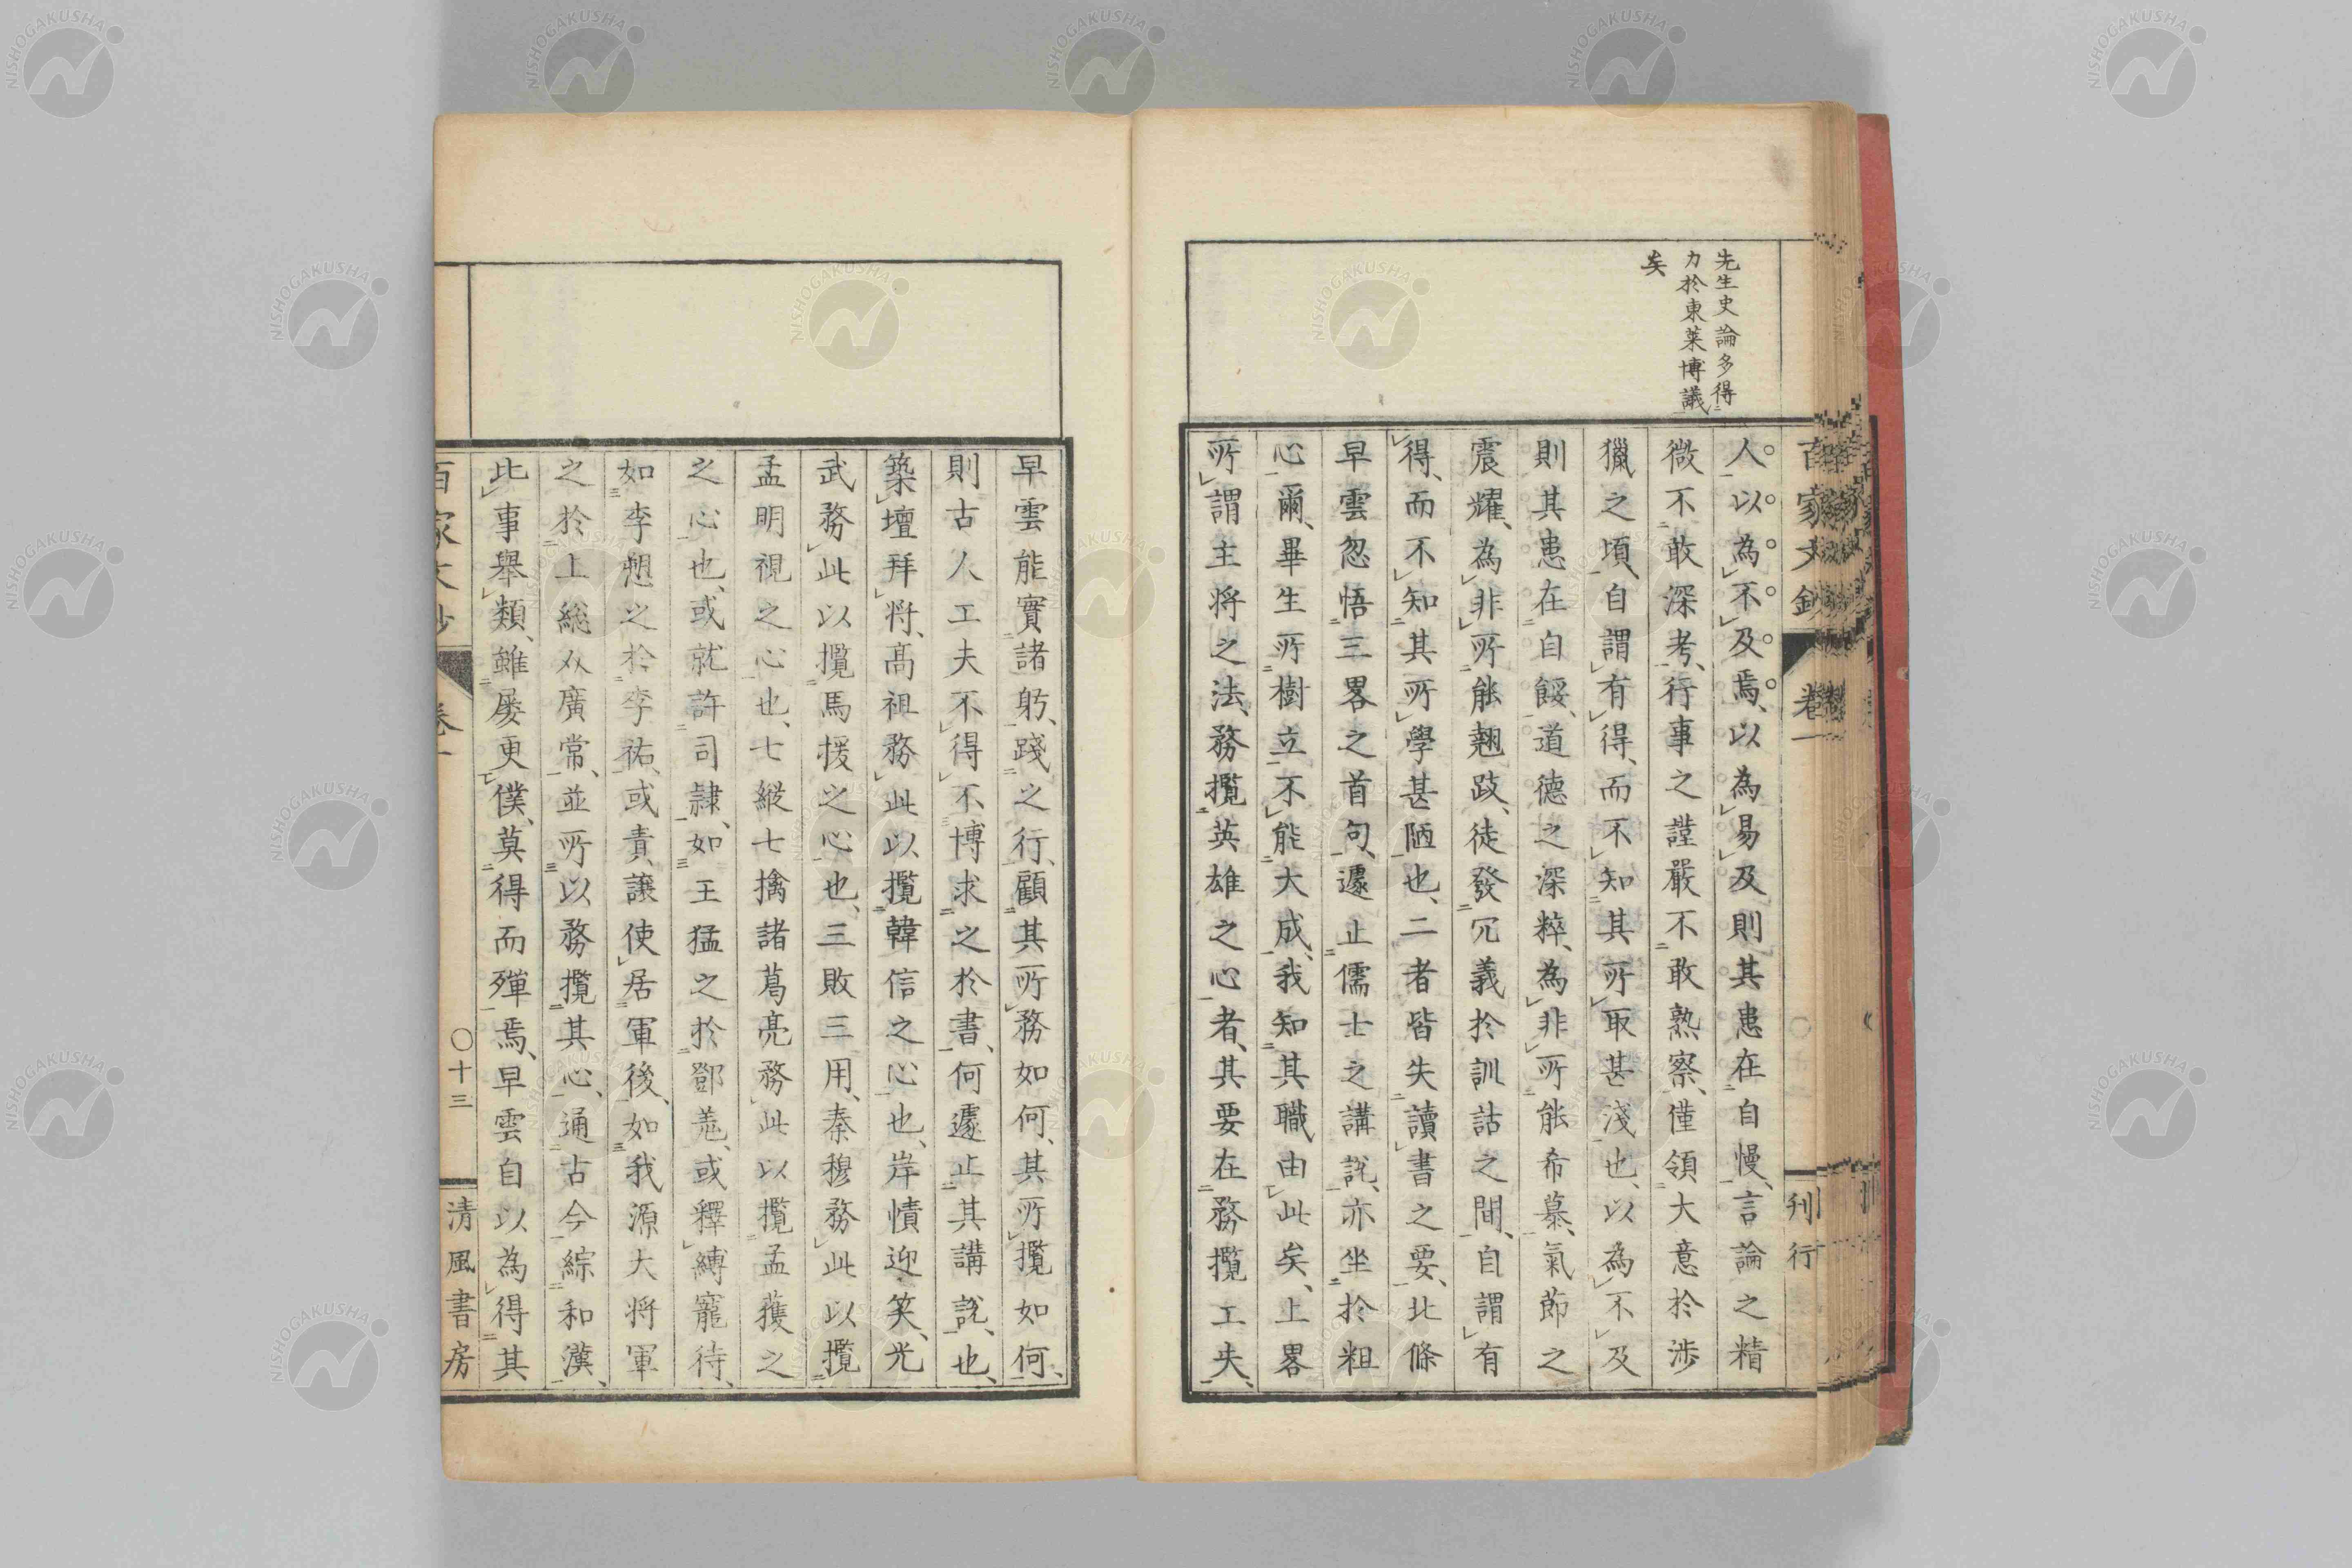 先生史論多得
力於東萊博議
矣
百家文鈔 卷一 刊行
人以為不及焉、以為易及則其患在自慢、言論之精
微不敢深考、行事之謹嚴不敢熟察、僅領大意於涉
獵之頃、自謂有得、而不知其所取甚淺也、以為不及
則其患在自餒、道德之深粹、為非所能希慕、氣節之
震耀、為非所能翹跂、徒發冗義於訓詁之間、自謂有
得、而不知其所學甚陋也、二者皆失讀書之要、北條
早雲忽悟三畧之首句、遽止儒士之講說、亦坐於粗
心爾、畢生所樹立、不能大成、我知其職由此矣、上畧
所謂主将之法、務攬英雄之心者、其要在務攬工夫、
早雲能實諸躬、踐之行、顧其所務如何、其所攬如何、
則古人工夫不得不博求之於書、何遽止其講說也、
築壇拜将、高祖務此以攬韓信之心也、岸幘迎笑、光
武務此以攬馬援之心也、三敗三用、秦穆務此以攬
孟明視之心也、七縱七擒諸葛亮務此以攬孟獲之
之心也、或就許司隷、如王猛之於鄧羗、或釋縛寵待、
如李愬之於李祐、或責讓使居軍後、如我源大将軍
之於上総介廣常、並所以務攬其心、通古今綜和漢、
此事舉類、雖屡更僕、莫得而殫焉、早雲自以為得其
百家文鈔 卷一 〇十三 清風書房
NISHOGAKUSHA